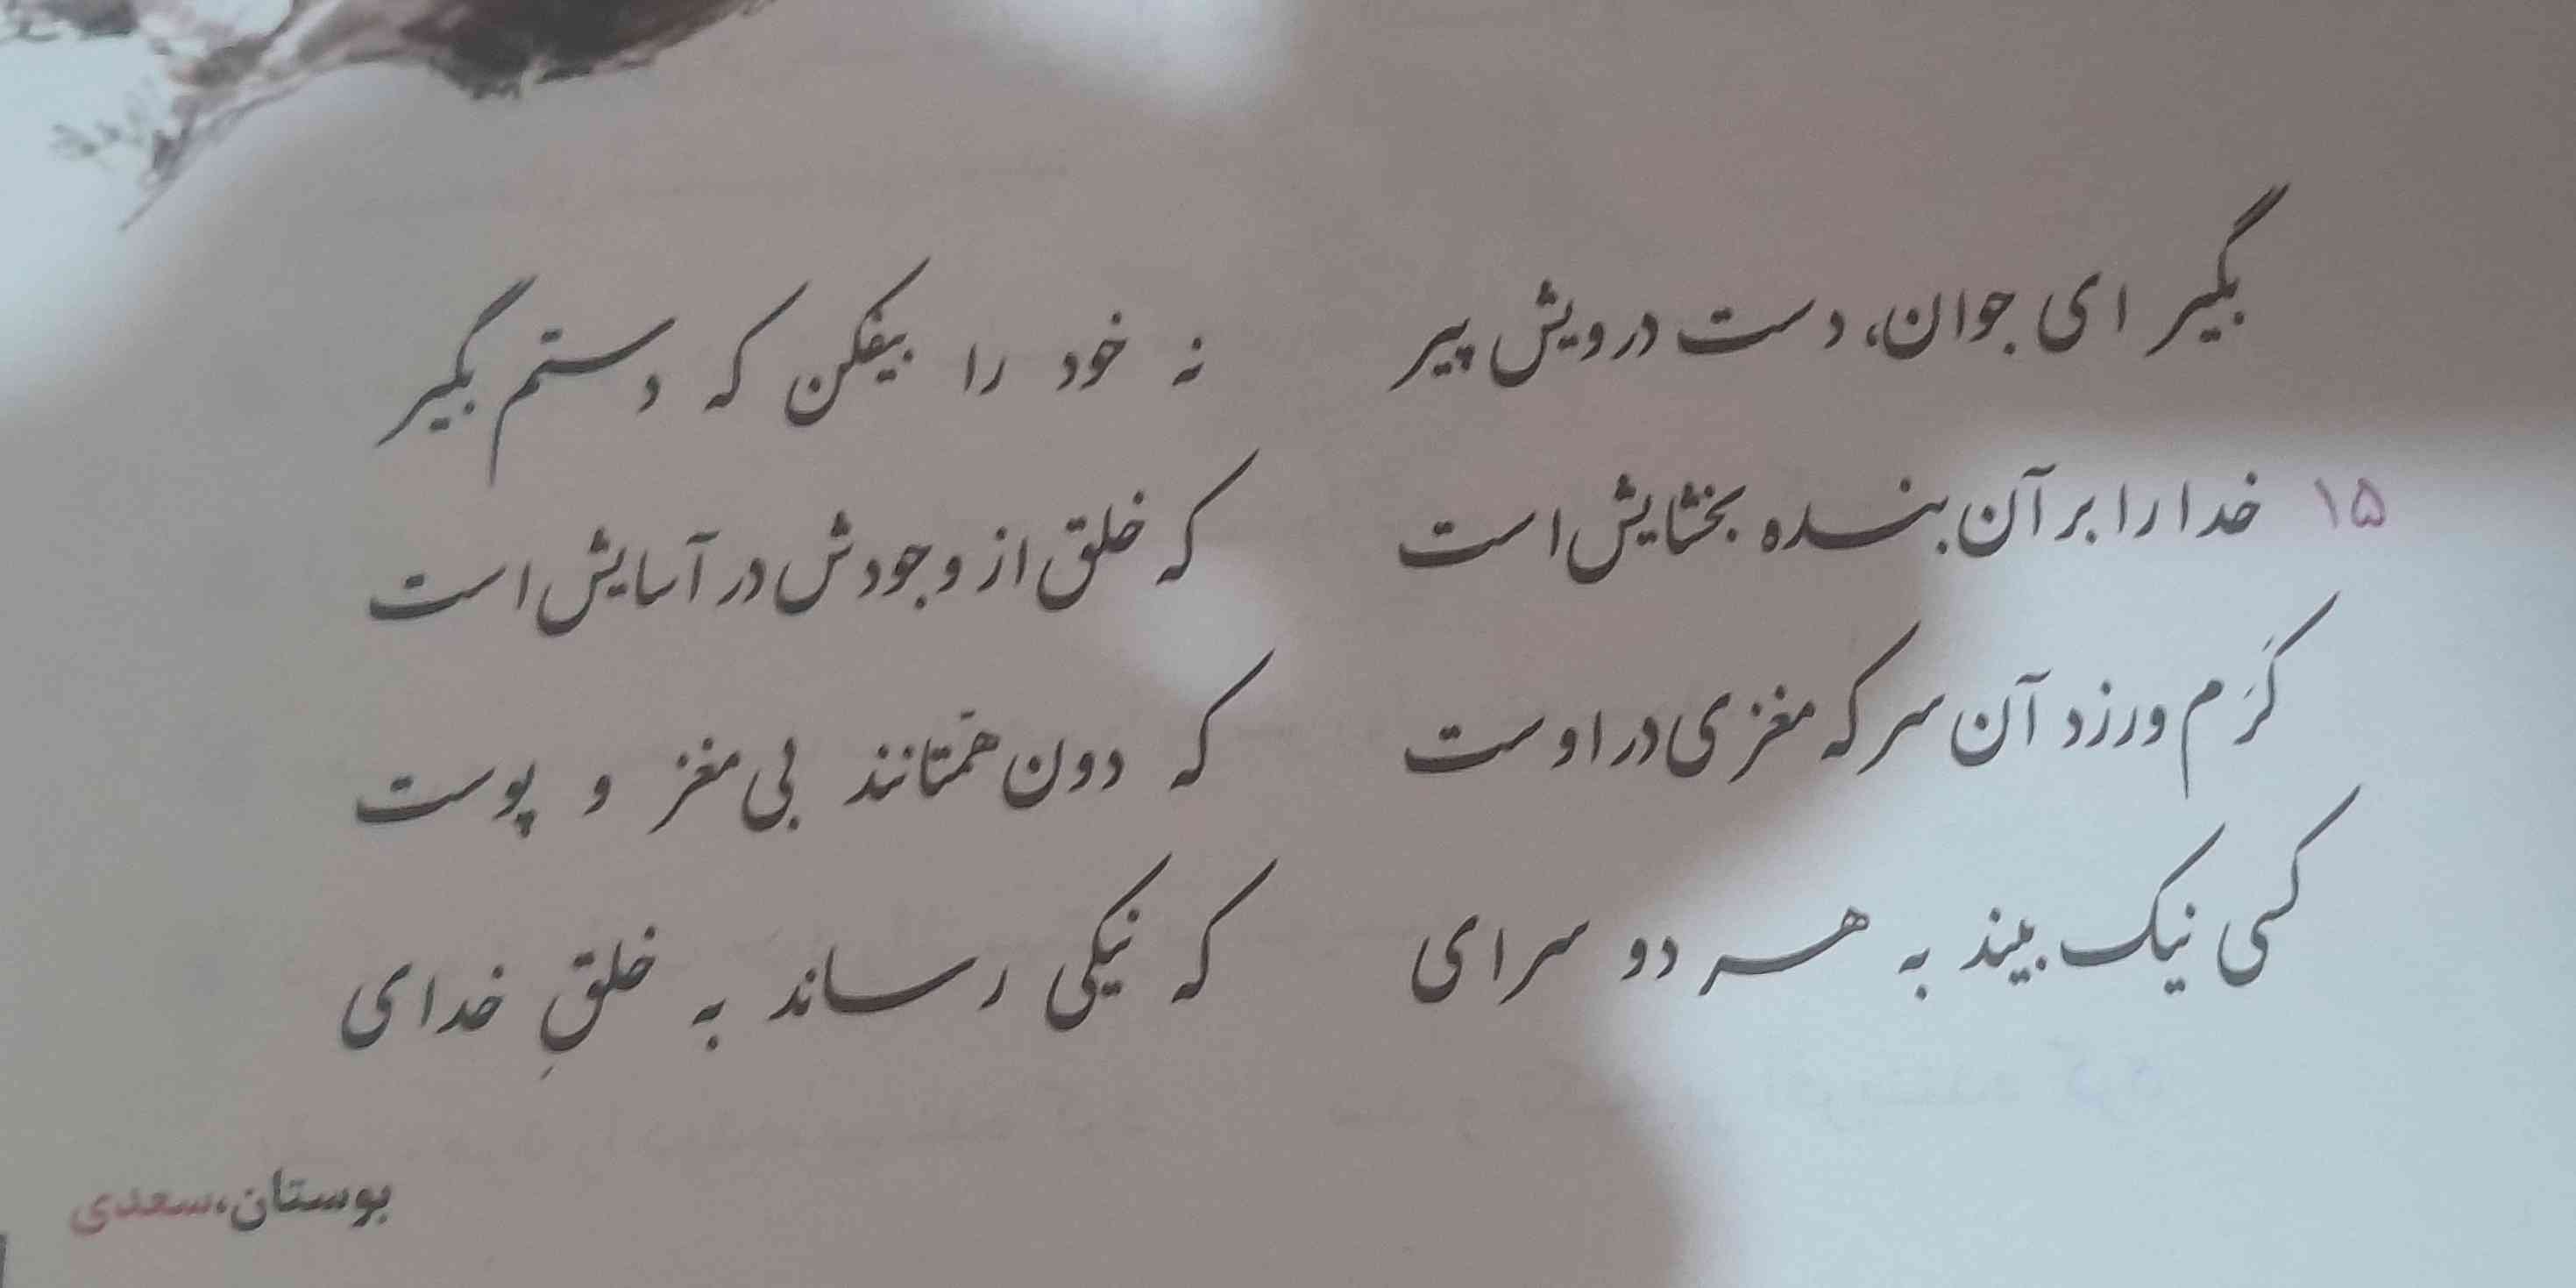 بگیر ای جوان، دست درویش پیر نه خود را بیفکن که دستم بگیر
۱۵ خدا را بر آن بنده بخشایش است که خلق از وجودش در آسایش است
کَرَم ورزد آن سر که مغزی در اوست که دون همّتانند بی مغز و پوست
کسی نیک بیند به هر دو سرای که نیکی رساند به خلقِ خدای
بوستان، سعدی